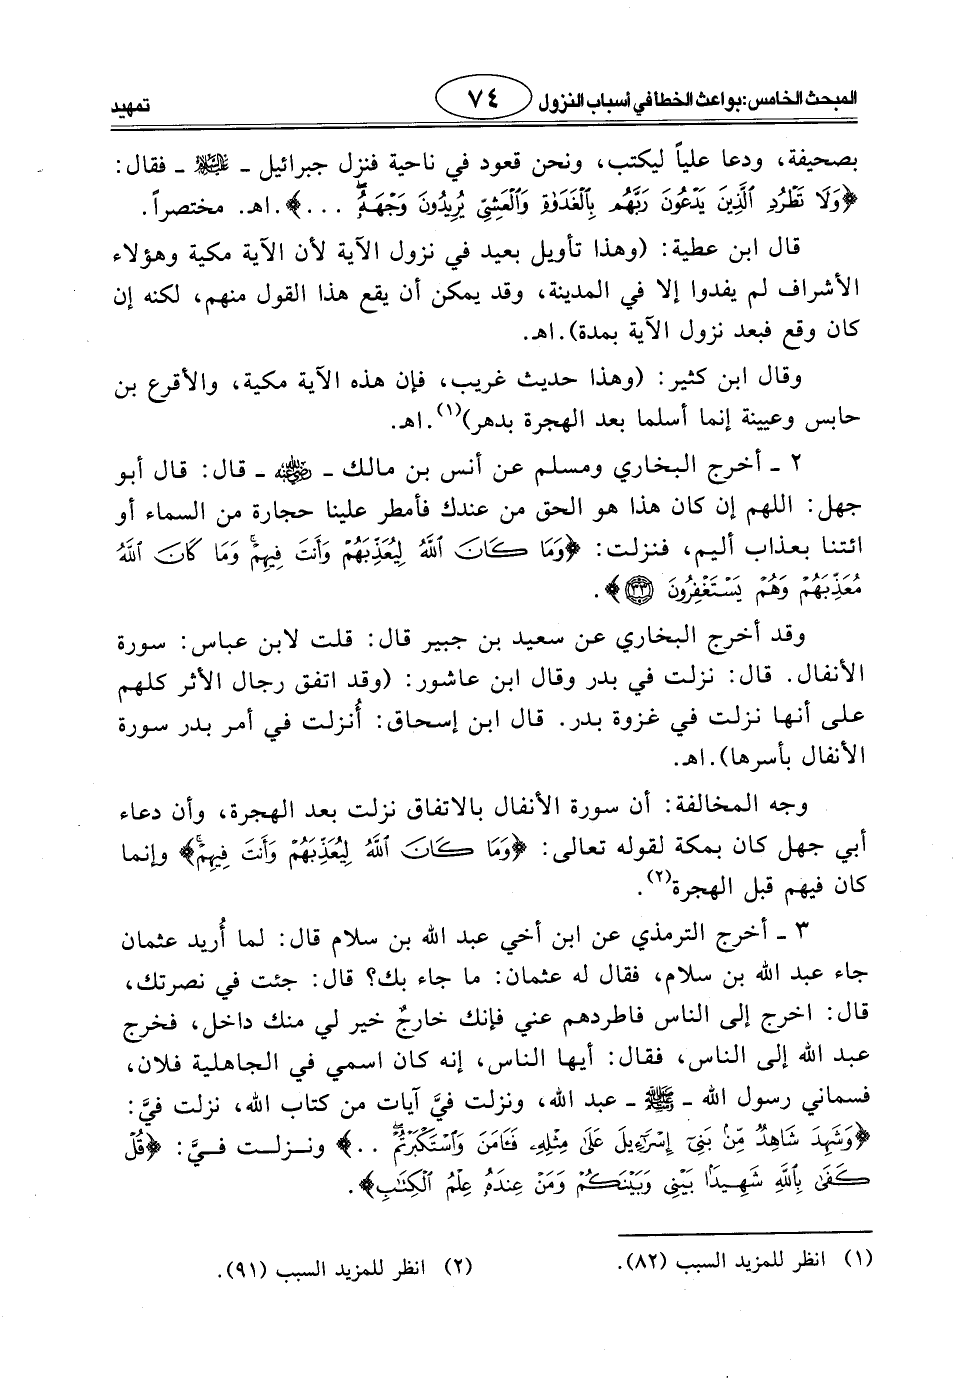 المبحث الخامس: بواعث الخطا في أسباب النزول ٧٤ تمهيد
بصحيفة، ودعا علياً ليكتب، ونحن قعود في ناحية فنزل جبرائيل ـ عليه السلام ـ فقال:
﴿وَلَا تَطْرُدِ ٱلَّذِينَ يَدْعُونَ رَبَّهُم بِٱلْغَدَوٰةِ وَٱلْعَشِيِّ يُرِيدُونَ وَجْهَهُۥ ...﴾. اهـ. مختصراً.
قال ابن عطية: (وهذا تأويل بعيد في نزول الآية لأن الآية مكية وهؤلاء
الأشراف لم يفدوا إلا في المدينة، وقد يمكن أن يقع هذا القول منهم، لكنه إن
كان وقع فبعد نزول الآية بمدة). اهـ.
وقال ابن كثير: (وهذا حديث غريب، فإن هذه الآية مكية، والأقرع بن
حابس وعيينة إنما أسلما بعد الهجرة بدهر)(١). اهـ.
٢ ـ أخرج البخاري ومسلم عن أنس بن مالك ـ رضي الله عنه ـ قال: قال أبو
جهل: اللهم إن كان هذا هو الحق من عندك فأمطر علينا حجارة من السماء أو
ائتنا بعذاب أليم، فنزلت: ﴿وَمَا كَانَ ٱللَّهُ لِيُعَذِّبَهُمْ وَأَنتَ فِيهِمْ ۚ وَمَا كَانَ ٱللَّهُ
مُعَذِّبَهُمْ وَهُمْ يَسْتَغْفِرُونَ ٣٣﴾.
وقد أخرج البخاري عن سعيد بن جبير قال: قلت لابن عباس: سورة
الأنفال. قال: نزلت في بدر وقال ابن عاشور: (وقد اتفق رجال الأثر كلهم
على أنها نزلت في غزوة بدر. قال ابن إسحاق: أُنزلت في أمر بدر سورة
الأنفال بأسرها). اهـ.
وجه المخالفة: أن سورة الأنفال بالاتفاق نزلت بعد الهجرة، وأن دعاء
أبي جهل كان بمكة لقوله تعالى: ﴿وَمَا كَانَ ٱللَّهُ لِيُعَذِّبَهُمْ وَأَنتَ فِيهِمْ ۚ﴾ وإنما
كان فيهم قبل الهجرة(٢).
٣ ـ أخرج الترمذي عن ابن أخي عبد الله بن سلام قال: لما أُريد عثمان
جاء عبد الله بن سلام، فقال له عثمان: ما جاء بك؟ قال: جئت في نصرتك،
قال: اخرج إلى الناس فاطردهم عني فإنك خارجٌ خير لي منك داخل، فخرج
عبد الله إلى الناس، فقال: أيها الناس، إنه كان اسمي في الجاهلية فلان،
فسماني رسول الله ـ ﷺ ـ عبد الله، ونزلت فيَّ آيات من كتاب الله، نزلت فيَّ:
﴿وَشَهِدَ شَاهِدٌ مِّنۢ بَنِىٓ إِسْرَٰٓءِيلَ عَلَىٰ مِثْلِهِۦ فَـَٔامَنَ وَٱسْتَكْبَرْتُمْ ۖ ..﴾ ونزلت فيَّ: ﴿قُلْ
كَفَىٰ بِٱللَّهِ شَهِيدًۢا بَيْنِى وَبَيْنَكُمْ وَمَنْ عِندَهُۥ عِلْمُ ٱلْكِتَٰبِ﴾.
(١) انظر للمزيد السبب (٨٢). (٢) انظر للمزيد السبب (٩١).